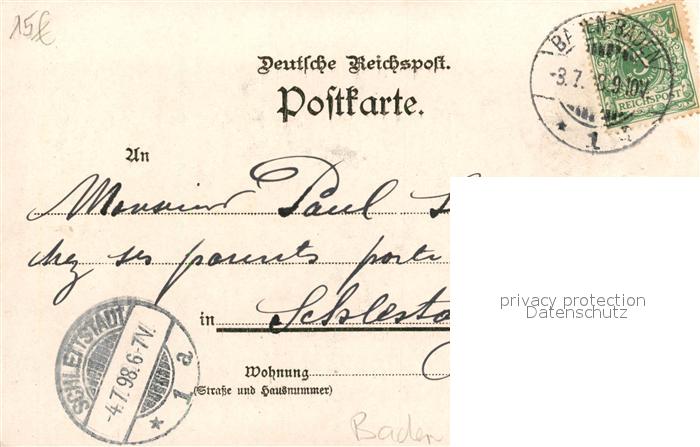 15£
BADEN-BADEN
-3.7.98.9-10V.
* 1 *
5
REICHSPOST
Deutsche Reichspost.
Postkarte.
An
Monsieur Paul
chez ses parents porte
in Schlesta
Wohnung
(Straße und Hausnummer)
SCHLETTSTADT
-4.7.98.6-7V.
* 1 a
Baden
privacy protection
Datenschutz